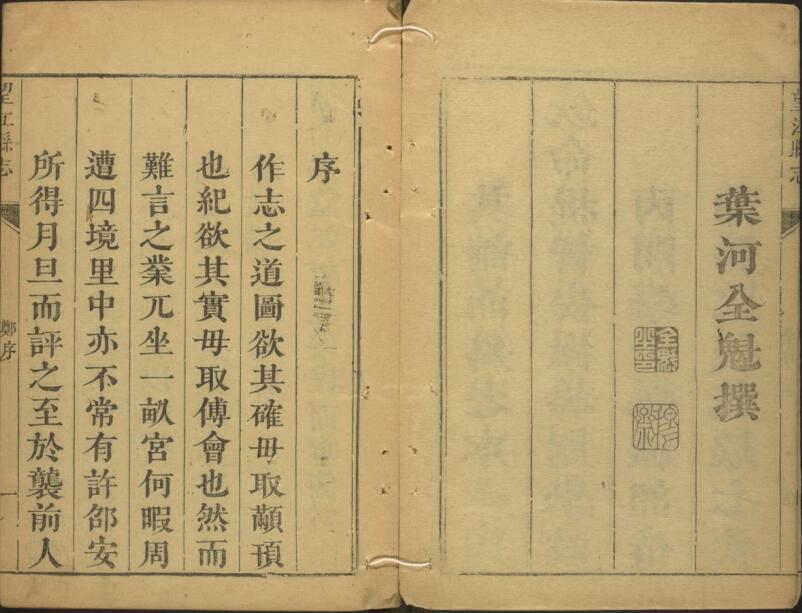 望江縣志
葉河全魁撰
序
作志之道圖欲其確毋取顢頇
也紀欲其實毋取傅會也然而
難言之業兀坐一畝宮何暇周
遭四境里中亦不常有許邵安
所得月旦而評之至於襲前人
望江縣志
鄭序
一